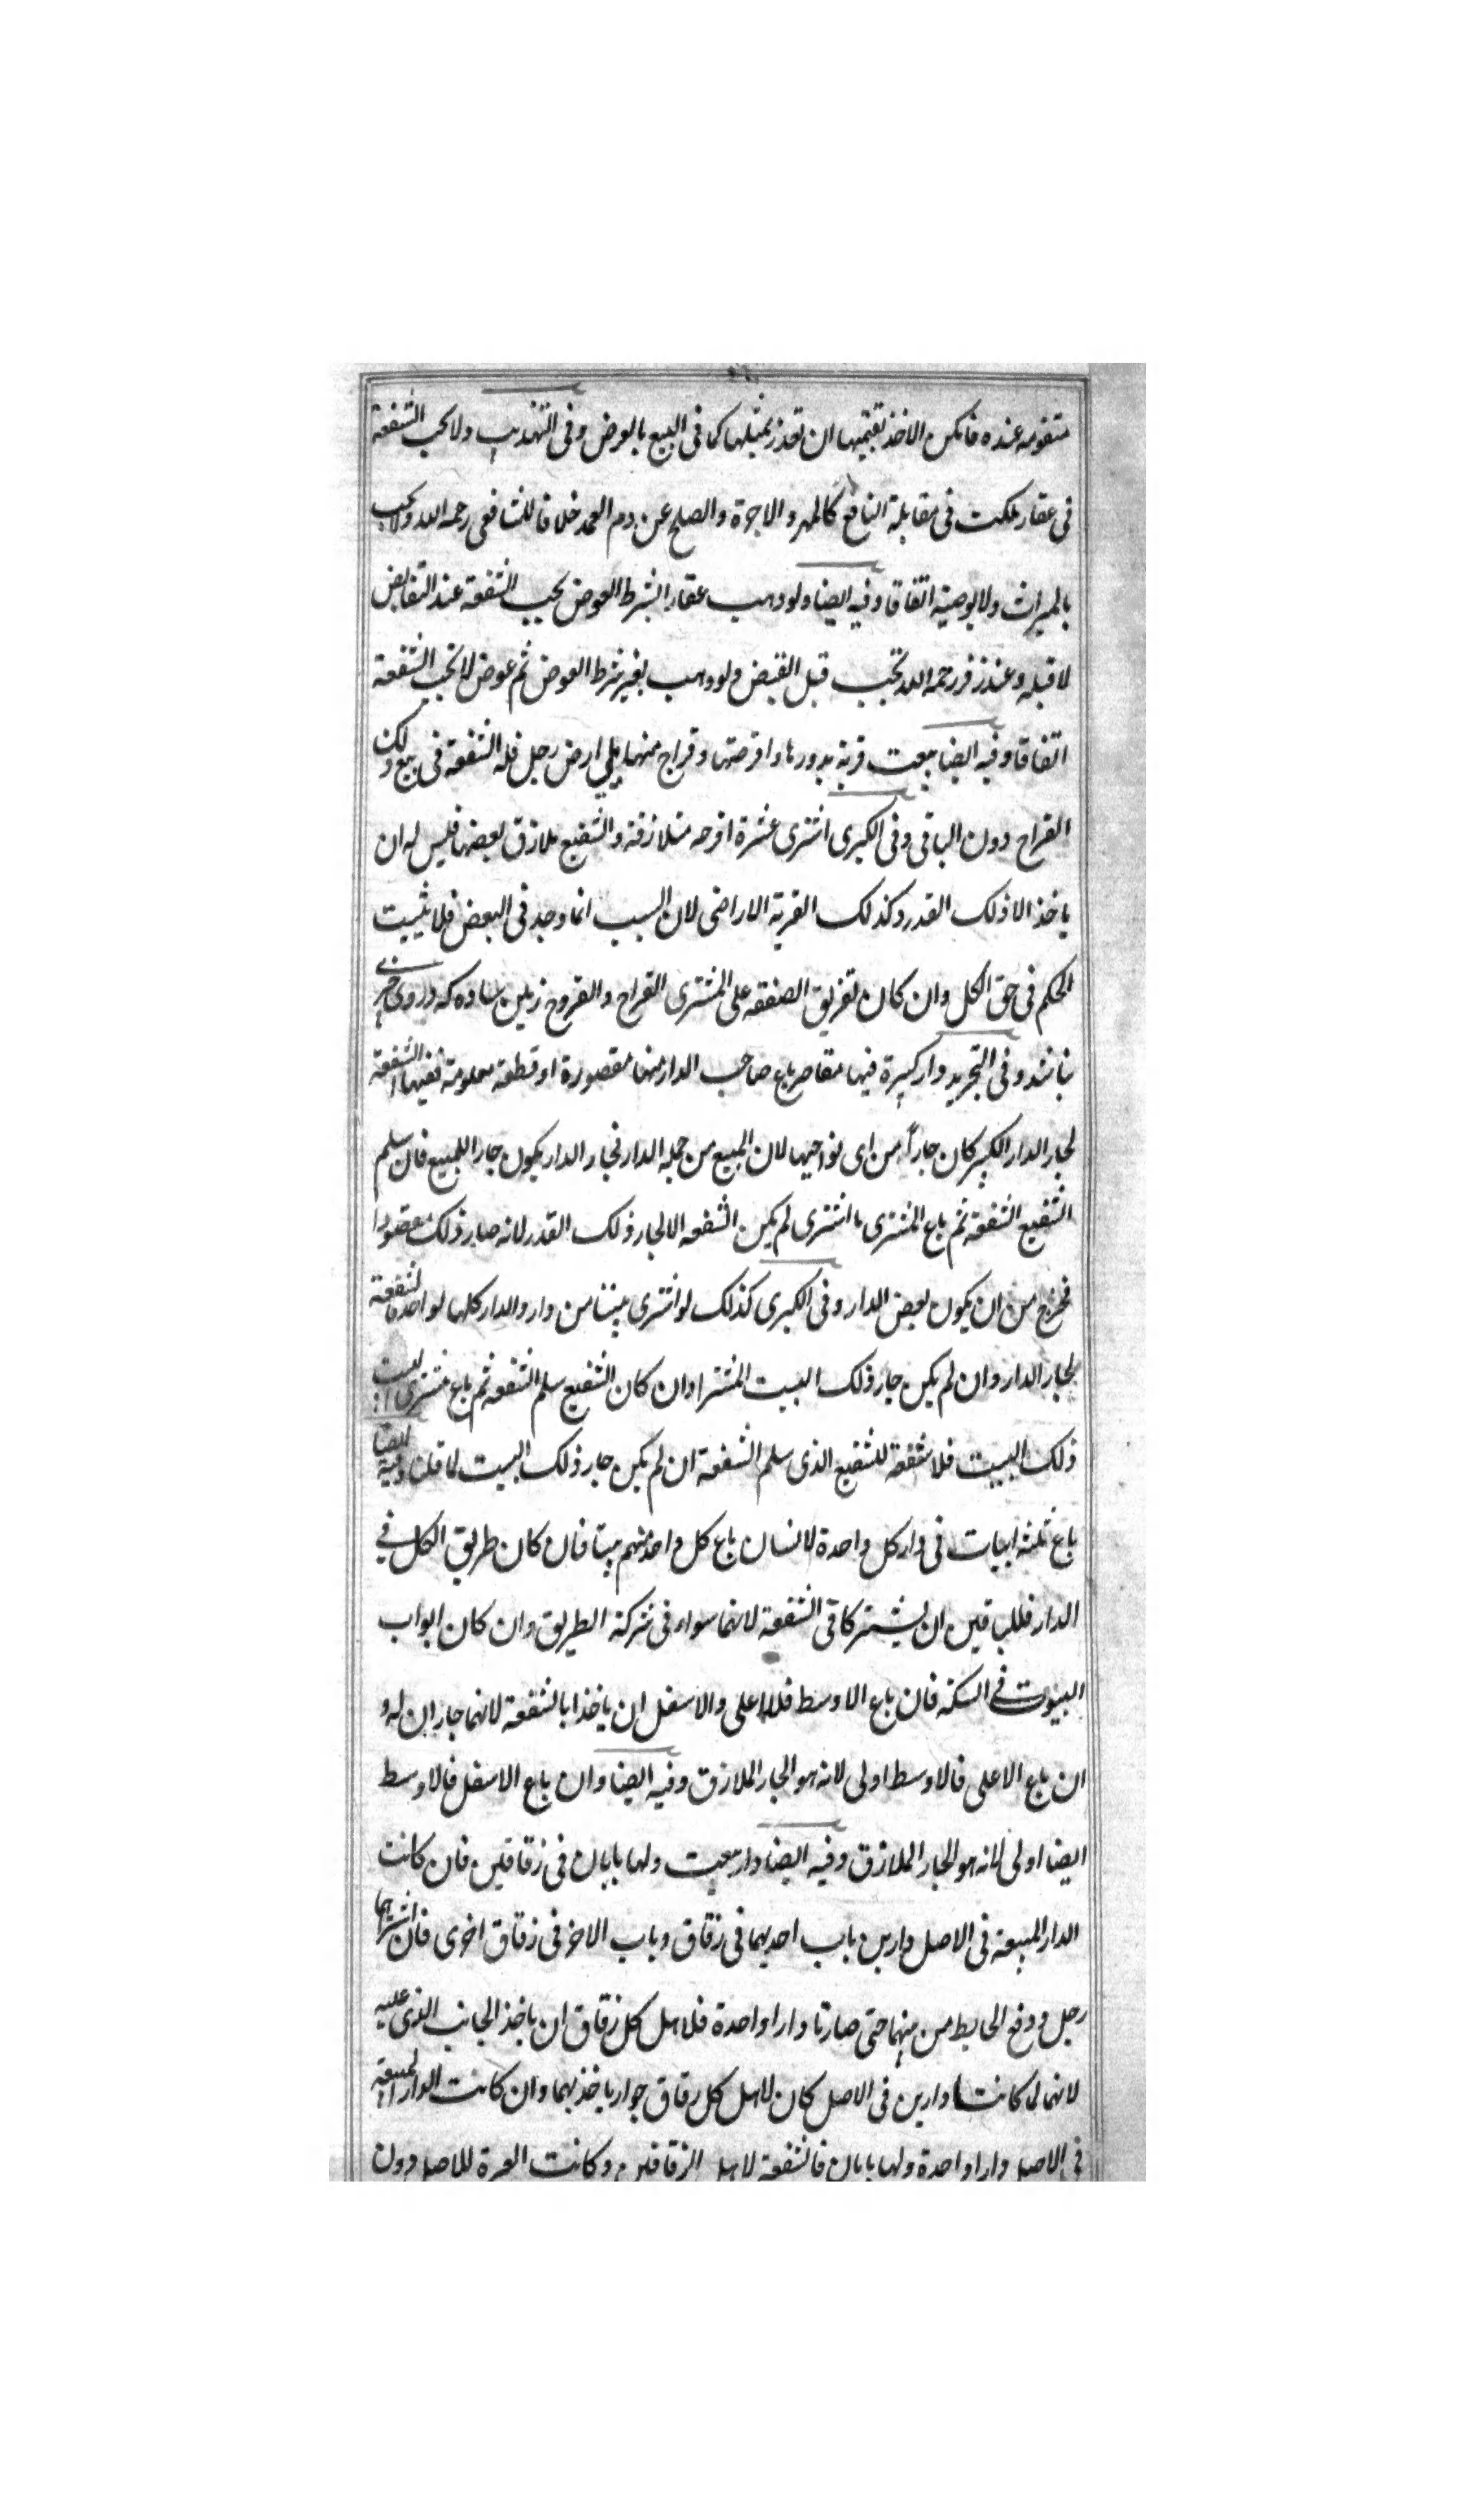 متقومه عنده فامكن الاخذ بقيمتها ان تعذر بمثلها كما فى البيع بالعرض وفى التهذيب ولا تجب الشفعة
فى عقار ملكت فى مقابلة المنافع كالمهر والاجرة والصلح عن دم العمد خلافا للشافعى رحمه الله ولا تجب
بالميراث ولا بوصية اتفاقا وفيه ايضا ولو وهب عقارا بشرط العوض يجب الشفعة عند التقابض
لا قبله وعند زفر رحمه الله تجب قبل القبض ولو وهب بغير شرط العوض ثم عوض لا تجب الشفعة
اتفاقا وفيه ايضا بيعت قرية بدورها واقرحتها وقراح منها يلى ارض رجل فله الشفعة فى بيع ذلك
القراح دون الباقى وفى الكبرى اشترى عشرة اقرحه متلازقة والشفيع ملازق بعضها فليس له ان
ياخذ الا ذلك القدر وكذلك القرية الاراضى لان السبب انما وجد فى البعض فلا يثبت
الحكم فى حق الكل وان كان تفريق الصفقة على المشترى القراح والقروح زمين ساده كه دروى چيزے
نباشد وفى التجريد دار كبيرة فيها مقاصر باع صاحب الدار منها مقصورة او قطعة معلومة ففيها الشفعة
لجار الدار الكبير كان جاراً من اى نواحيها لان المبيع من جملة الدار فجار الدار يكون جارا للمبيع فان سلم
الشفيع الشفعة ثم باع المشترى ما اشترى لم يكن الشفعه الا لجار ذلك القدر لانه صار ذلك مقصودا
فخرج من ان يكون بعض الدار وفى الكبرى كذلك لو اشترى بيتا من دار والدار كلها لواحد فالشفعة
لجار الدار وان لم يكن جار ذلك البيت المشترا وان كان الشفيع سلم الشفعه ثم باع مشترى البيت
ذلك البيت فلا شفعة للشفيع الذى سلم الشفعة ان لم يكن جار ذلك البيت لما قلنا وفيه ايضا
باع ثلثه ابيات فى دار كل واحدة لانسان باع كل واحد منهم بيتا فان كان طريق الكل فے
الدار فللباقين ان يشتركا فى الشفعة لانهما سواء فى شركة الطريق وان كان ابواب
البيوت فے السكة فان باع الاوسط فللاعلى والاسفل ان ياخذا بالشفعة لانهما جاران له و
ان باع الاعلى فالاوسط اولى لانه هو الجار الملازق وفيه ايضا وان باع الاسفل فالاوسط
ايضا اولى لانه هو الجار الملازق وفيه ايضا دار بيعت ولها بابان فى زقاقين فان كانت
الدار المبيعة فى الاصل دارين باب احديهما فى زقاق وباب الاخر فى زقاق اخرى فان اشتراهما
رجل ودفع الحايط من بينهما حتى صارتا دارا واحدة فلاهل كل زقاق ان ياخذ الجانب الذى عليه
لانهما لما كانتا دارين فى الاصل كان لاهل كل زقاق جوار ياخذ بهما وان كانت الدار المبيعة
فى الاصل دارا واحدة ولها بابان فالشفعة لاهل الزقاقين وكانت العبرة للاصل دون